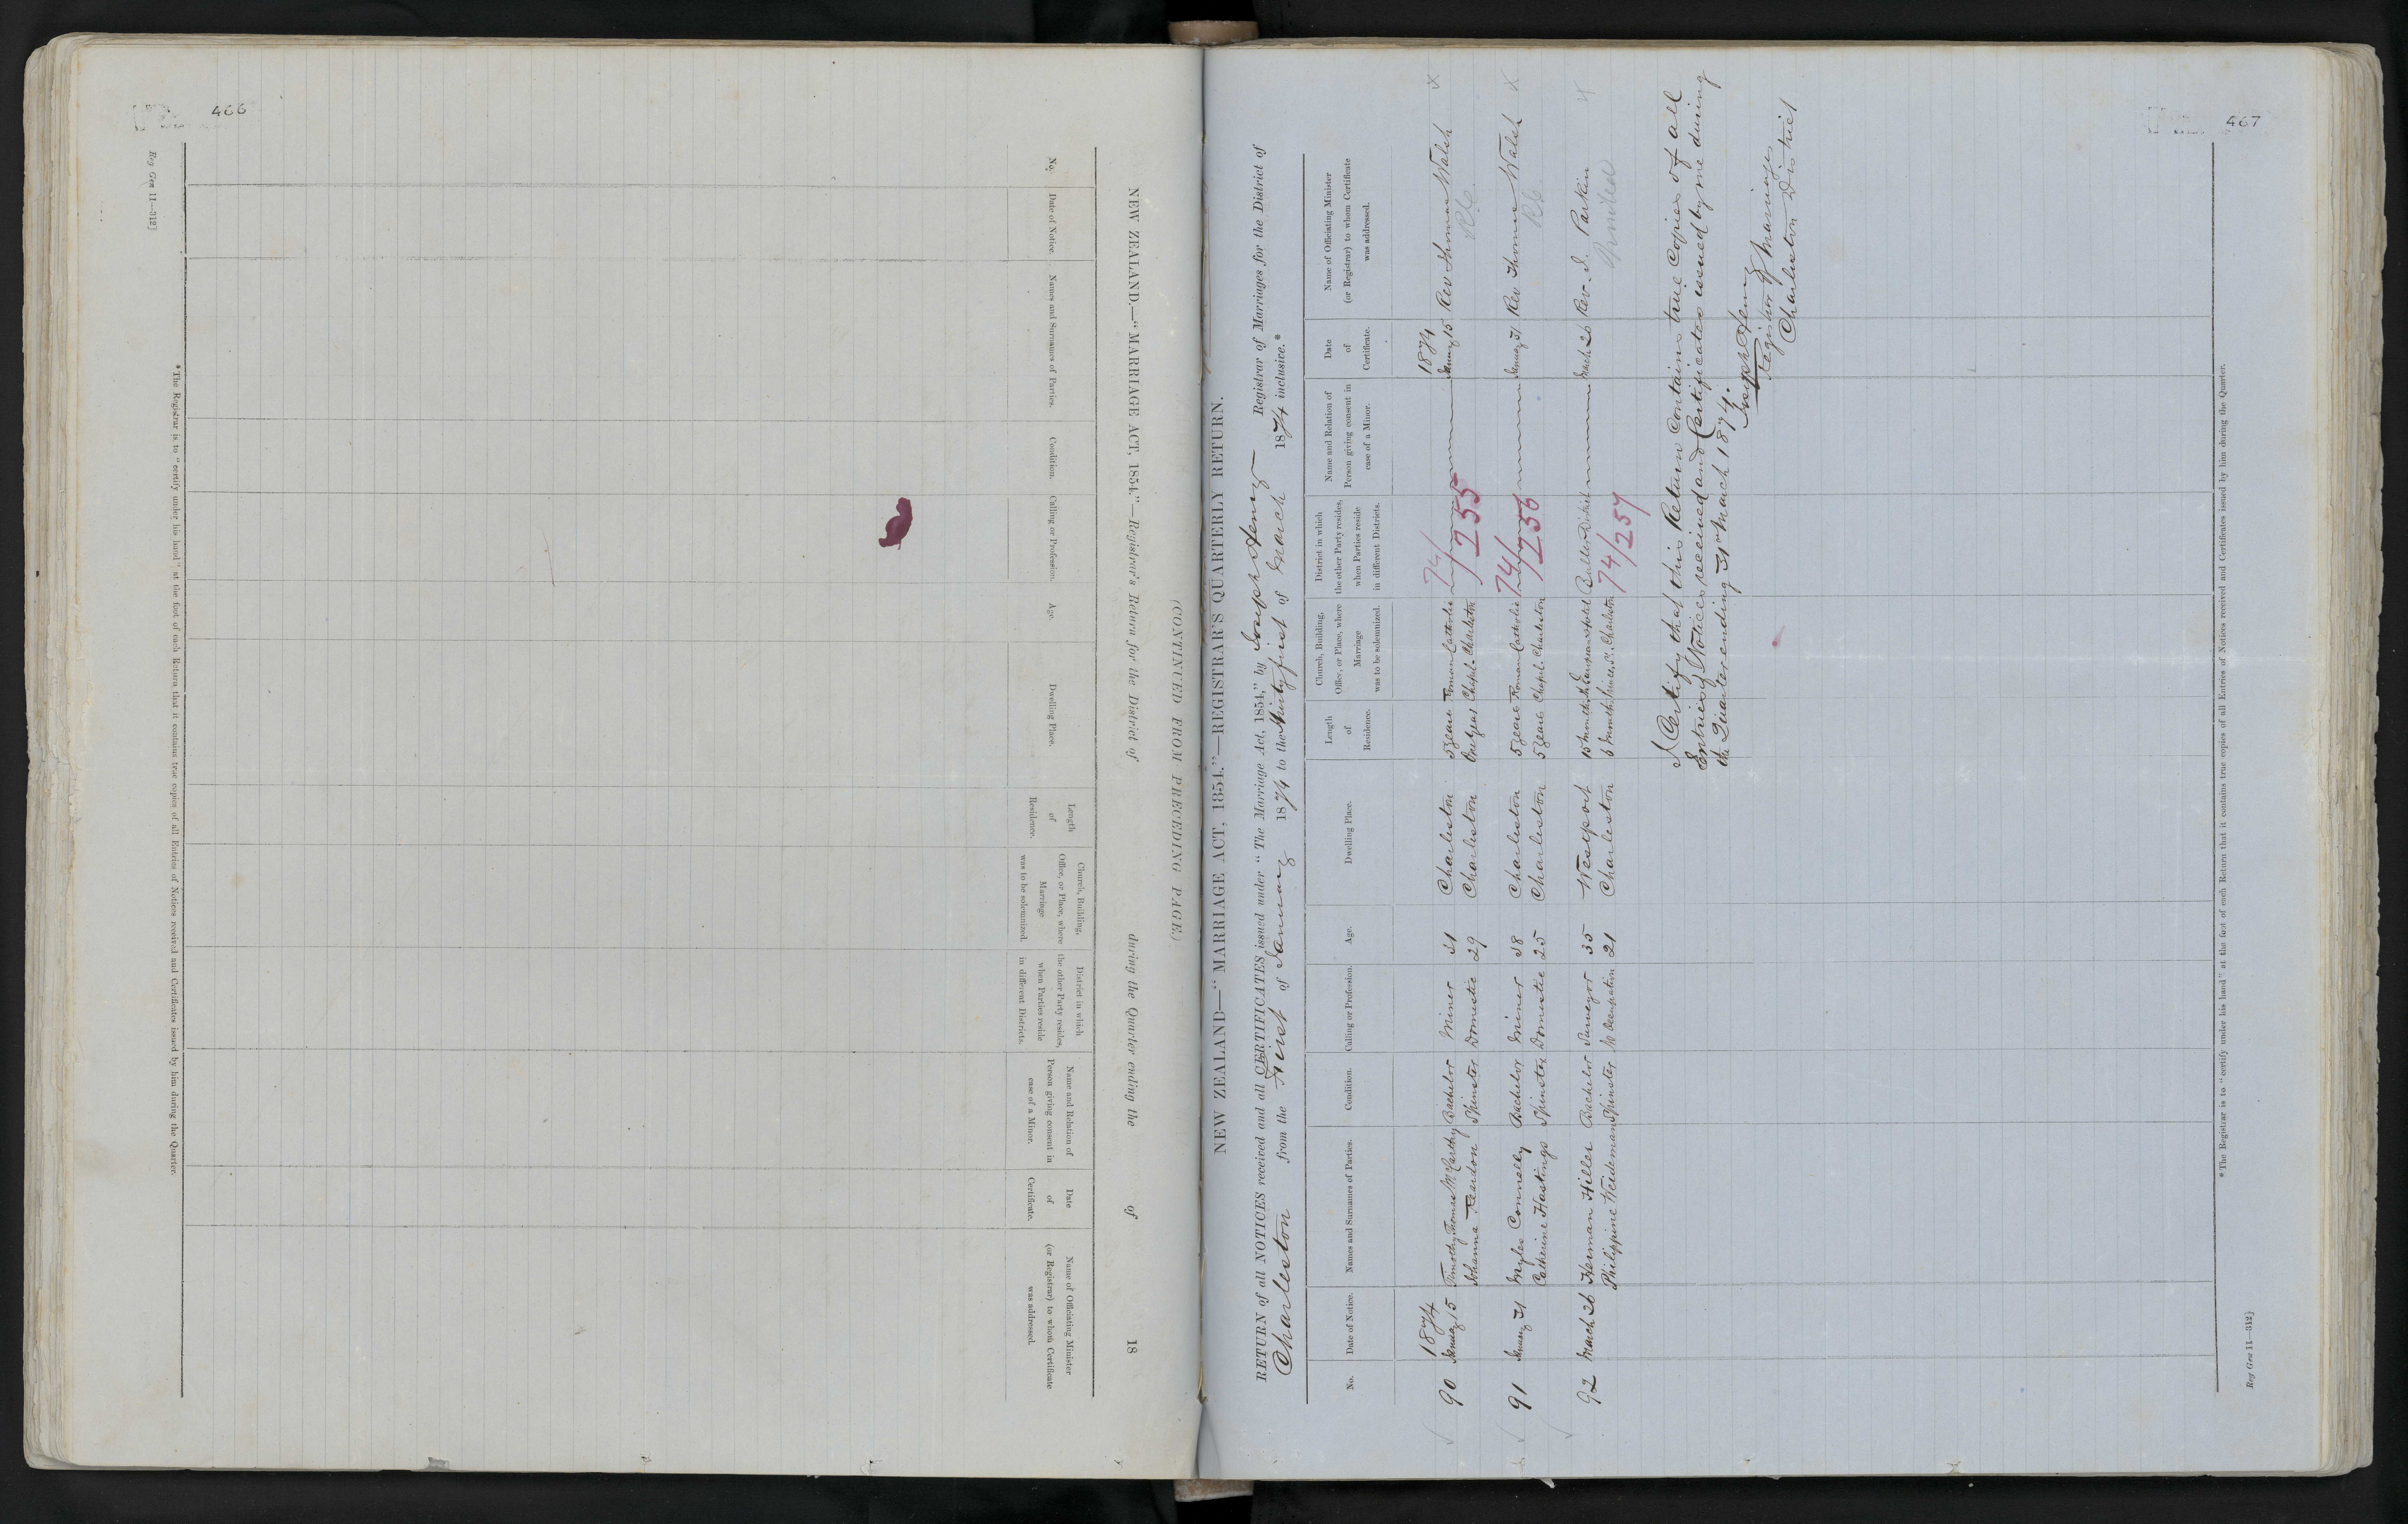 466
NEW ZEALAND.—"MARRIAGE ACT, 1854."—Registrar's Return for the District of during the Quarter ending the of 18
(CONTINUED FROM PRECEDING PAGE.)
No. Date of Notice. Names and Surnames of Parties. Condition. Calling or Profession. Age. Dwelling Place. Length of Residence. Church, Building, Office, or Place, where Marriage was to be solemnized. District in which the other Party resides, when Parties reside in different Districts. Name and Relation of Person giving consent in case of a Minor. Date of Certificate. Name of Officiating Minister (or Registrar) to whom Certificate was addressed.
* The Registrar is to "certify under his hand" at the foot of each Return that it contains true copies of all Entries of Notices received and Certificates issued by him during the Quarter.
Reg Gen 11—312]
467
NEW ZEALAND—"MARRIAGE ACT, 1854."—REGISTRAR'S QUARTERLY RETURN.
RETURN of all NOTICES received and all CERTIFICATES issued under "The Marriage Act, 1854," by Joseph Henry Registrar of Marriages for the District of
Charleston from the First of January 1874 to the thirty first of March 1874 inclusive.*
No. Date of Notice. Names and Surnames of Parties. Condition. Calling or Profession. Age. Dwelling Place. Length of Residence. Church, Building, Office, or Place, where Marriage was to be solemnized. District in which the other Party resides, when Parties reside in different Districts. Name and Relation of Person giving consent in case of a Minor. Date of Certificate. Name of Officiating Minister (or Registrar) to whom Certificate was addressed.
1874 74/ 1874
90 January 15 Timothy Thomas McCarthy Bachelor Miner 31 Charleston 5 years Roman Catholic January 15 Rev Thomas Walsh X
Johanna Reardon Spinster Domestic 29 Charleston One Year Chapel. Charleston 255 R.C.
91 January 31 Myles Connelly Bachelor Miner 38 Charleston 5 years Roman Catholic 74/ January 31 Rev Thomas Walsh X
Catherine Hastings Spinster Domestic 25 Charleston 5 years Chapel. Charleston 256 R.C.
92 March 26 Herman Hiller Bachelor Surveyor 35 Westport 15 months the European Hotel Buller District March 26 Rev. I. Parkin X
Philippine Weideman Spinster No Occupation 21 Charleston 6 months Princes St. Charleston 74/257
I Certify that this Return Contains true Copies of all
Entries of Notices received and Certificates issued by me during
the Quarter ending 31st March 1874.
Joseph Henry
Registrar of Marriages
Charleston District
* The Registrar is to "certify under his hand" at the foot of each Return that it contains true copies of all Entries of Notices received and Certificates issued by him during the Quarter.
Reg Gen 11—312]